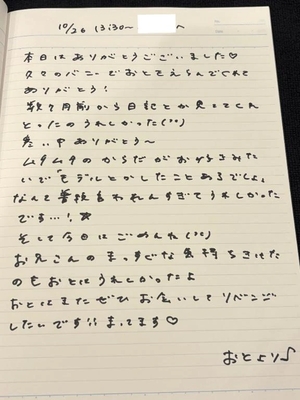 10/26 13:30〜
本日はありがとうございました♡
久々のバニーでおとてえらんでくれて
ありがとう!
数ヶ月前から日記とか見ててくれ
とったのうれしかった(˘˘)
寒い中ありがとう〜
ムチムチのからだがおすきみた
いで「モデルとかしたことあるでしょ」
なんて普段言われんすぎてうれしかった
です…! ☆
そして今日はごめんね(˘˘)
お兄さんのまっすぐな気持ちきけた
のもおとはうれしかったよ
おとはまたぜひお会いしてリベンジ
したいです!! まってます♡
おとより♪